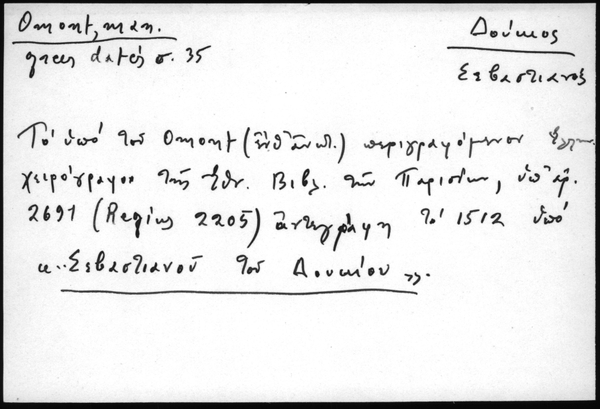 Omont, man.
grecs datés σ. 35
Δούκιος
Σεβαστιανός
Τό ὑπό τοῦ Omont (ἔνθ' ἀνωτ.) περιγραφόμενον ἑλλην.
χειρόγραφον τῆς Ἐθν. Βιβλ. τῶν Παρισίων, ὑπ' ἀρ.
2691 (Regius 2205) ἀντεγράφη τό 1512 ὑπό
«Σεβαστιανοῦ τοῦ Δουκίου».